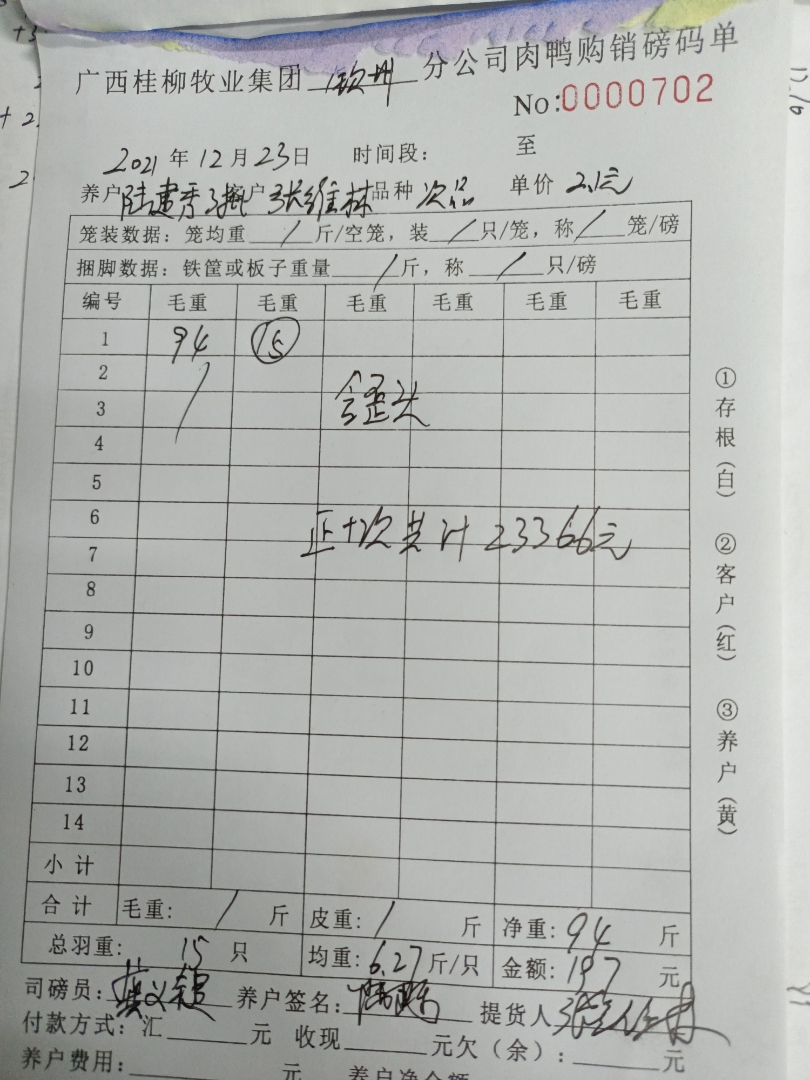 广西桂柳牧业集团 钦州 分公司肉鸭购销磅码单
No:0000702
2021 年 12 月 23 日 时间段： 至
养户 陆建秀 客户 张维林 品种 次品 单价 2.1元
笼装数据：笼均重 / 斤/空笼，装 / 只/笼，称 / 笼/磅
捆脚数据：铁筐或板子重量 / 斤，称 / 只/磅
编号 毛重 毛重 毛重 毛重 毛重 毛重
1 94 15
2 /
3 含歪头
4
5
6
正+次共计23366元
7
8
9
10
11
12
13
14
小计
合计 毛重： / 斤 皮重： / 斤 净重：94 斤
总羽重： 15 只 均重：6.27 斤/只 金额：197 元
司磅员： 养户签名： 提货人
付款方式：汇 元 收现 元欠（余）： 元
养户费用： 元 养户净金额
①存根（白） ②客户（红） ③养户（黄）